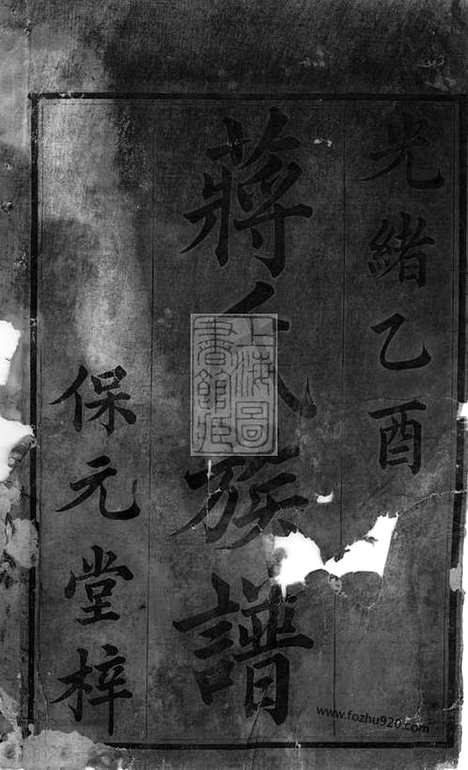 光緒乙酉
蔣氏族譜
保元堂梓
上海圖書館藏
www.fozhu920.com